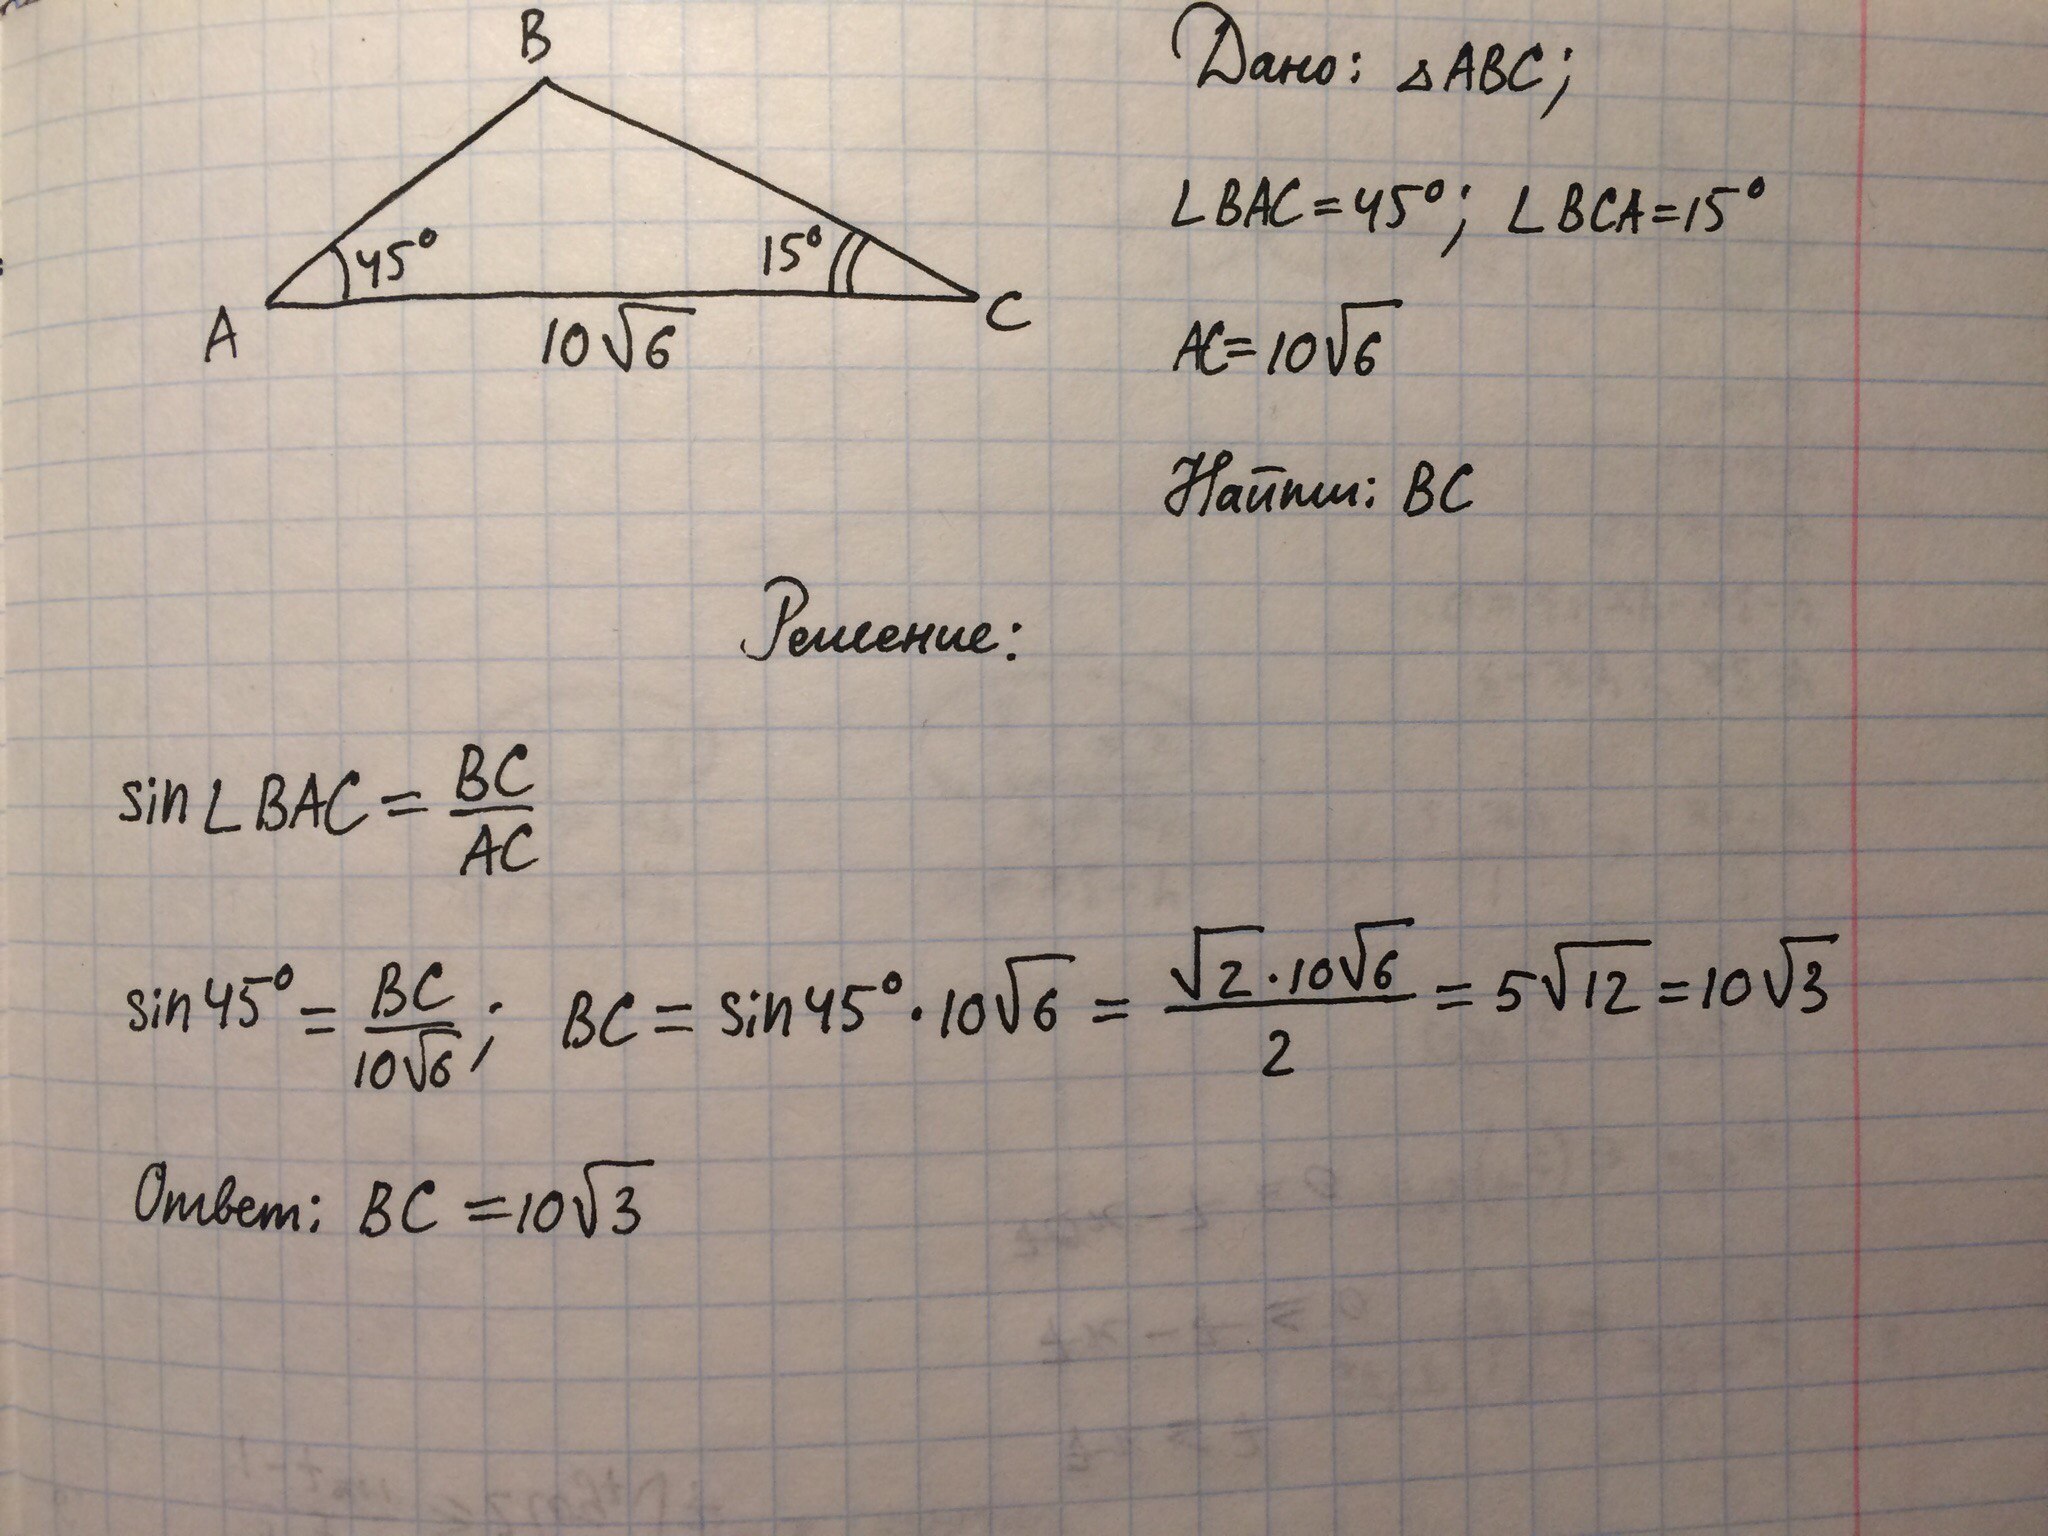 B
Дано: △ABC;
45° 15°
∠BAC=45°; ∠BCA=15°
A C
10√6
AC=10√6
Найти: BC
Решение:
sin∠BAC = BC/AC
sin45° = BC/10√6; BC = sin45° · 10√6 = √2·10√6/2 = 5√12 = 10√3
Ответ: BC = 10√3